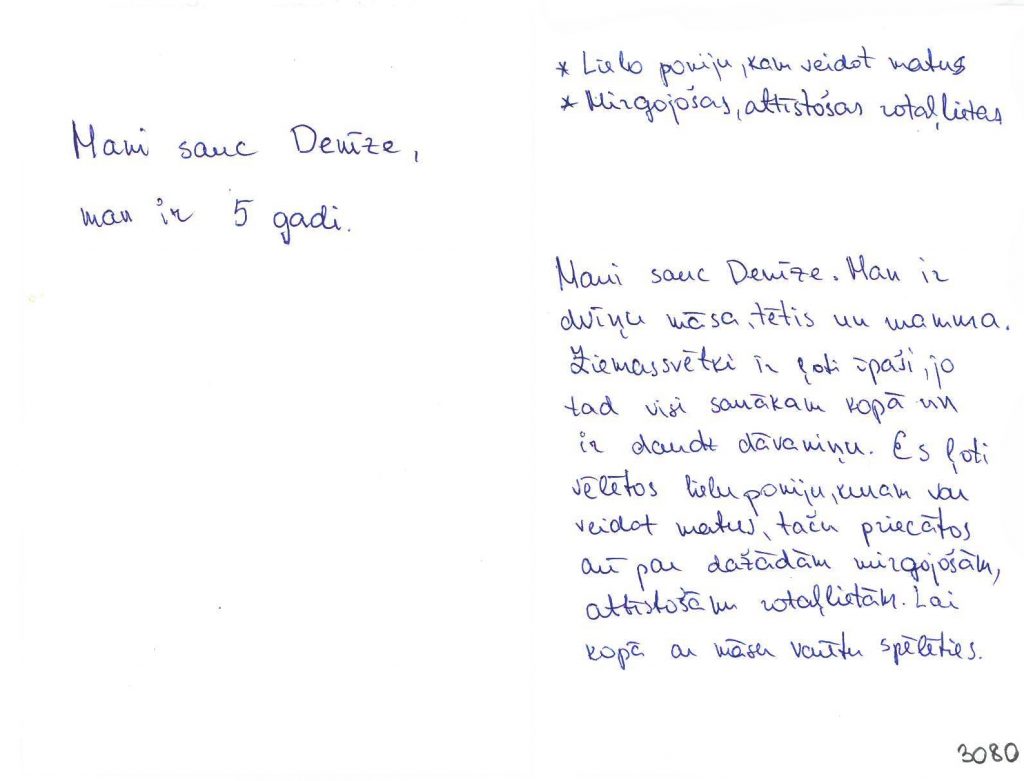 Mani sauc Denīze,
man ir 5 gadi.
* Lielo poniju, kam veidot matus
* Mirgojošas, attīstošas rotaļlietas
Mani sauc Denīze. Man ir
dvīņu māsa, tētis un mamma.
Ziemassvētki ir ļoti īpaši, jo
tad visi sanākam kopā un
ir daudz dāvaniņu. Es ļoti
vēlētos lielu poniju, kuram var
veidot matus, taču priecātos
arī par dažādām mirgojošām,
attīstošām rotaļlietām. Lai
kopā ar māsu varētu spēlēties.
3080